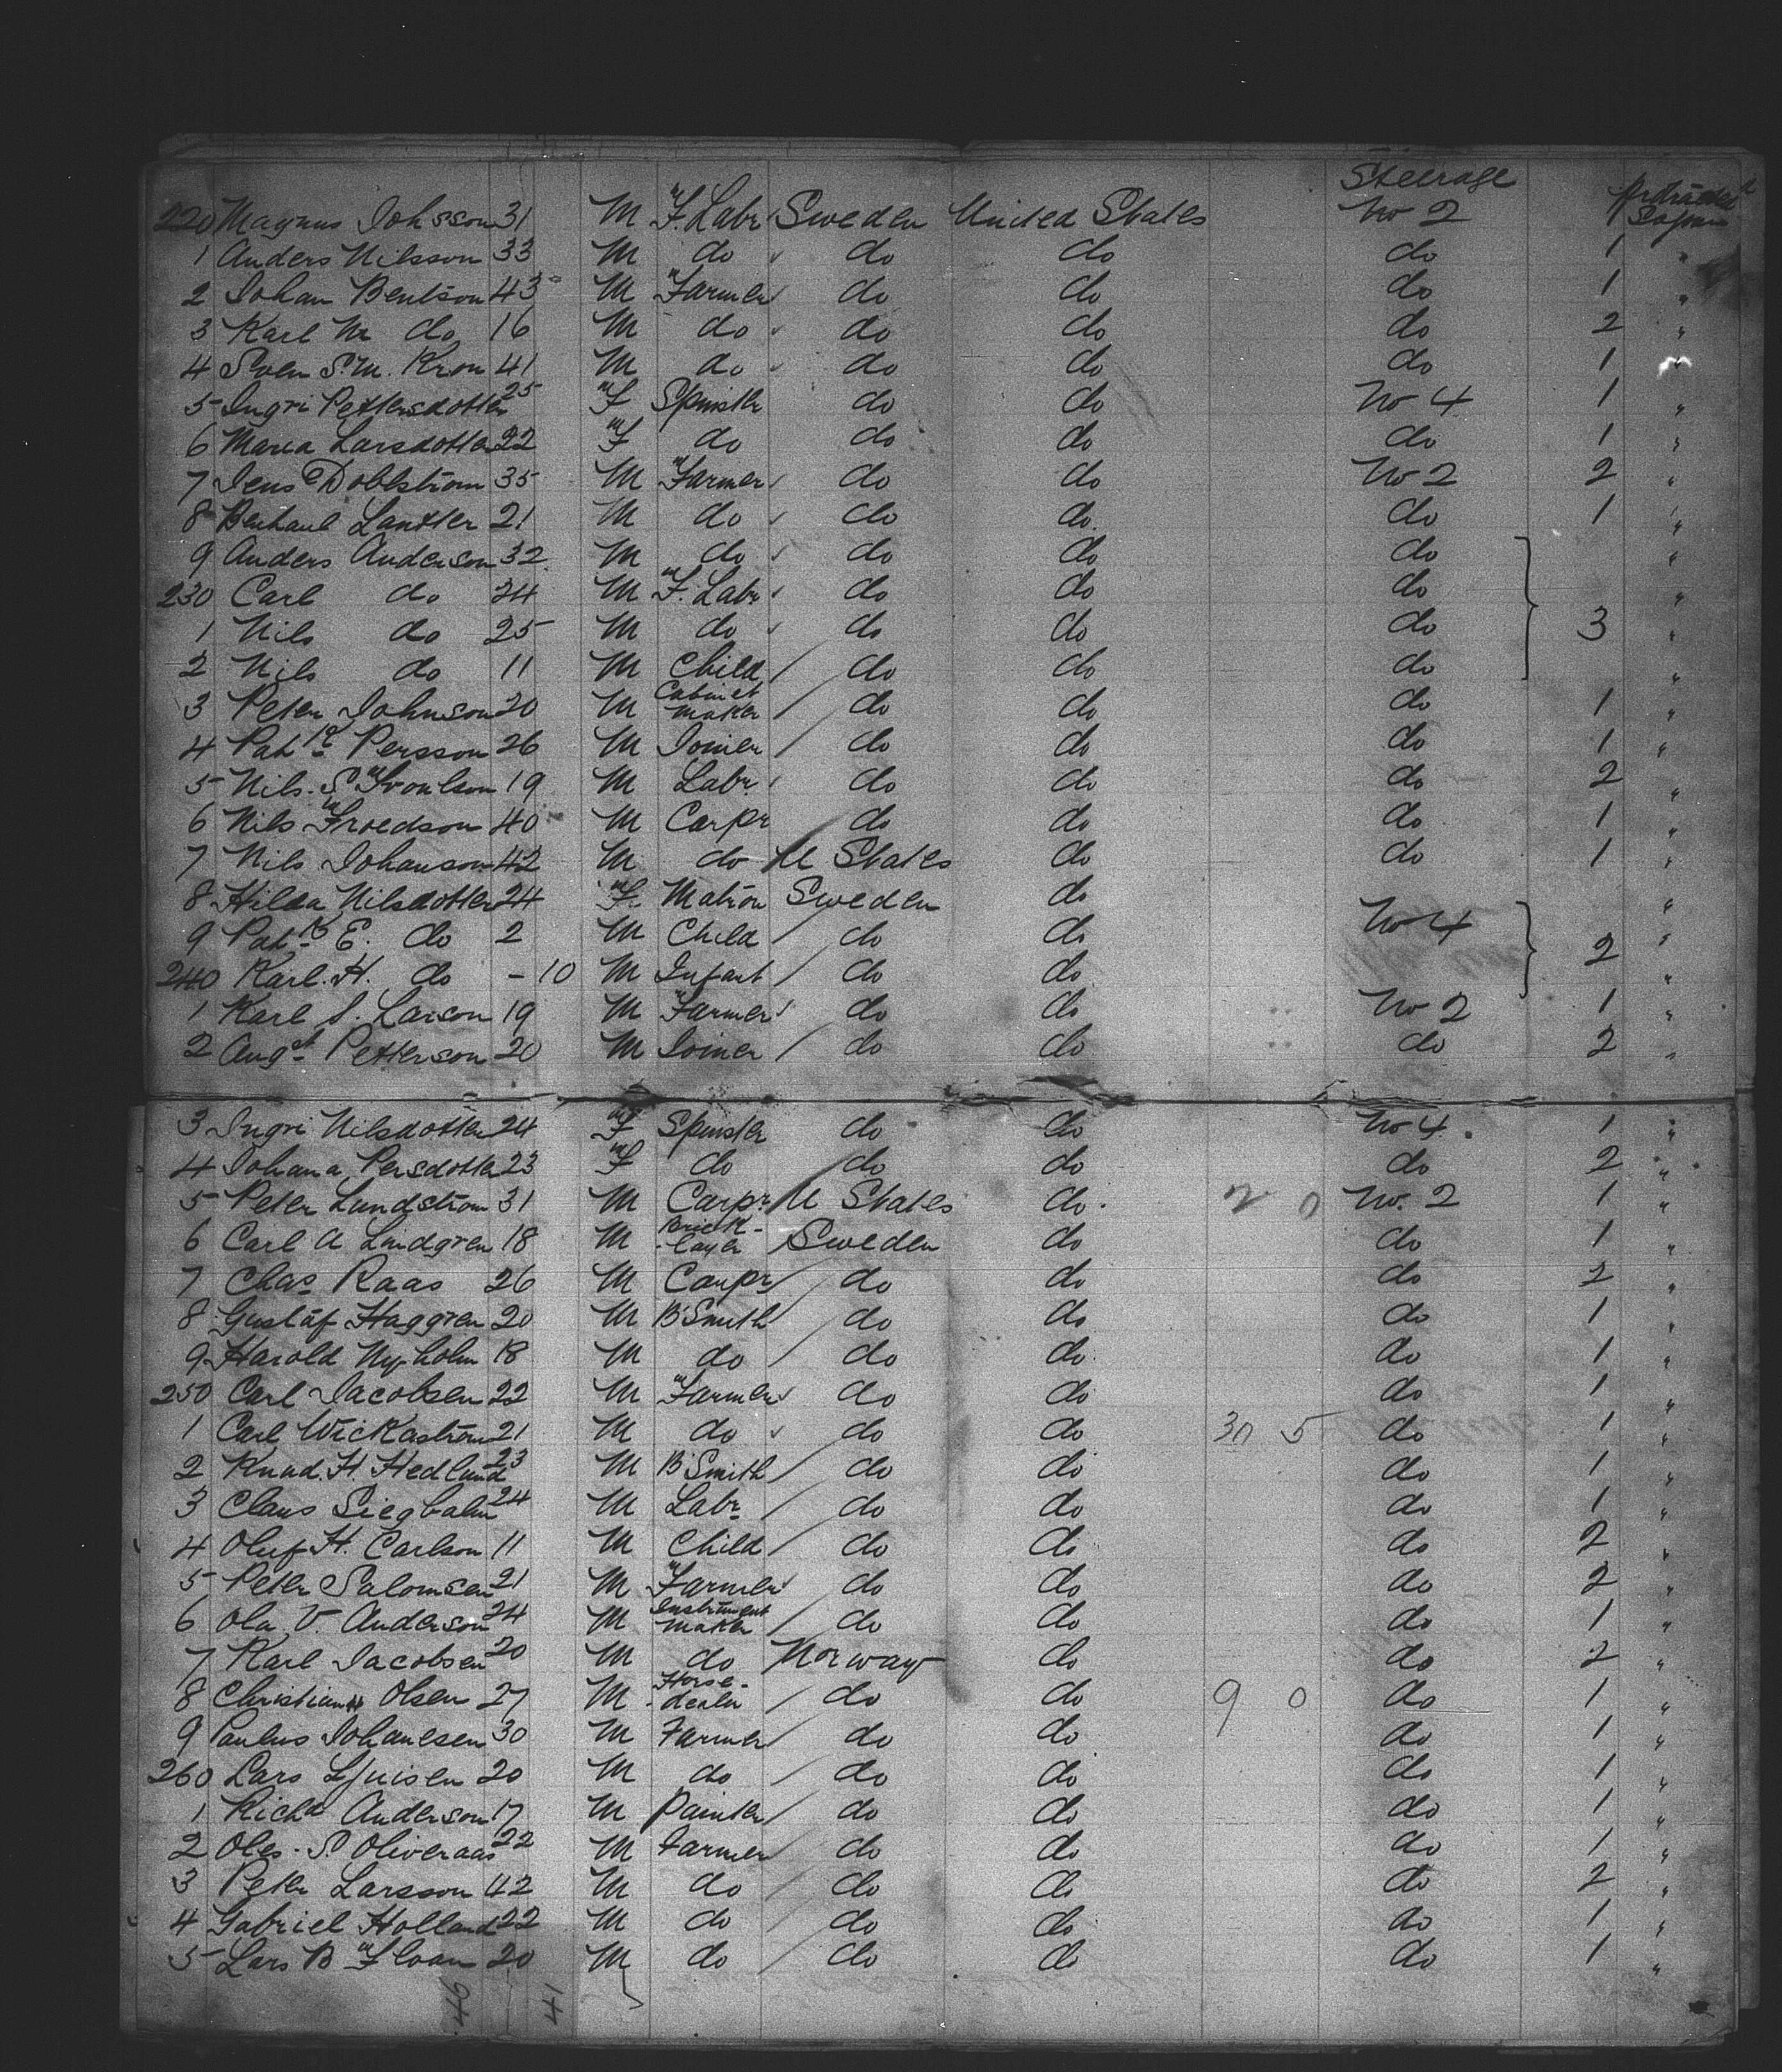 Steerage
220 Magnus Johsson 31 M F. Labr Sweden United States No 2 1
1 Anders Nilsson 33 M do do do do 1 "
2 Johan Bentson 43 M Farmer do do do 1 "
3 Karl M do 16 M do do do do 2 "
4 Sven S.M. Kron 41 M do do do do 1
5 Ingri Pettersdotter 25 F Spinster do do No 4 1 "
6 Maria Larsdotter 22 F do do do do 1 "
7 Jens Dobbstrom 35 M Farmer do do No 2 2 "
8 Lantler 21 M do do do do 1 "
9 Anders Anderson 32 M do do do do "
230 Carl do 24 M F. Labr do do do "
1 Nils do 25 M do do do do 3 "
2 Nils do 11 M Child do do do "
3 Peter Johnson 20 M Cabinet maker do do do 1 "
4 Patrk Persson 26 M Joiner do do do 1 "
5 Nils. S 19 M Labr do do do 2 "
6 Nils Froedson 40 M Carpr do do do 1 "
7 Nils Johanson 42 M do U States do do 1 "
8 Hilda Nilsdotter 24 F. Matron Sweden do "
9 Patrk E. do 2 M Child do do No 4 2 "
240 Karl. H. do - 10 M Infant do do "
1 Karl S. Larson 19 M Farmer do do No 2 1 "
2 Augst Petterson 20 M Joiner do do do 2 "
3 Ingri Nilsdotter 24 F Spinster do do No 4. 1 "
4 Johana Persdotter 23 F do do do do 2 "
5 Peter Lundstrom 31 M Carpr U States do. 2 0 No. 2 1 "
6 Carl A Lindgren 18 M Brick-layer Sweden do do 1 "
7 Chas Raas 26 M Carpr do do do 2 "
8 Gustaf Haggren 20 M B'Smith do do do 1 "
9 Harold Nyholm 18 M do do do do 1 "
250 Carl Jacobsen 22 M Farmer do do do 1 "
1 Carl Wickastrom 21 M do do do 30 5 do 1 "
2 Knud. H. Hedlund 23 M B'Smith do do do 1 "
3 Claus Siegbalm 24 M Labr do do do 1 "
4 Oluf H. Carlson 11 M Child do do do 2 "
5 Peter Salomsen 21 M Farmer do do do 2 "
6 Ola V. Anderson 24 M Instrument maker do do do 1 "
7 Karl Jacobsen 20 M do Norway do do 2 "
8 Christian Olsen 27 M Horse-dealer do do 9 0 do 1 "
9 Paulus Johanesen 30 M Farmer do do do 1 "
260 Lars 20 M do do do do 1 "
1 Richd Anderson 17 M Painter do do do 1 "
2 Oles. S. Oliveraas 22 M Farmer do do do 1 "
3 Peter Larsson 42 M do do do do 2 "
4 Gabriel Holland 22 M do do do do 1 "
5 Lars B Floan 20 M do do do do 1 "
94 14